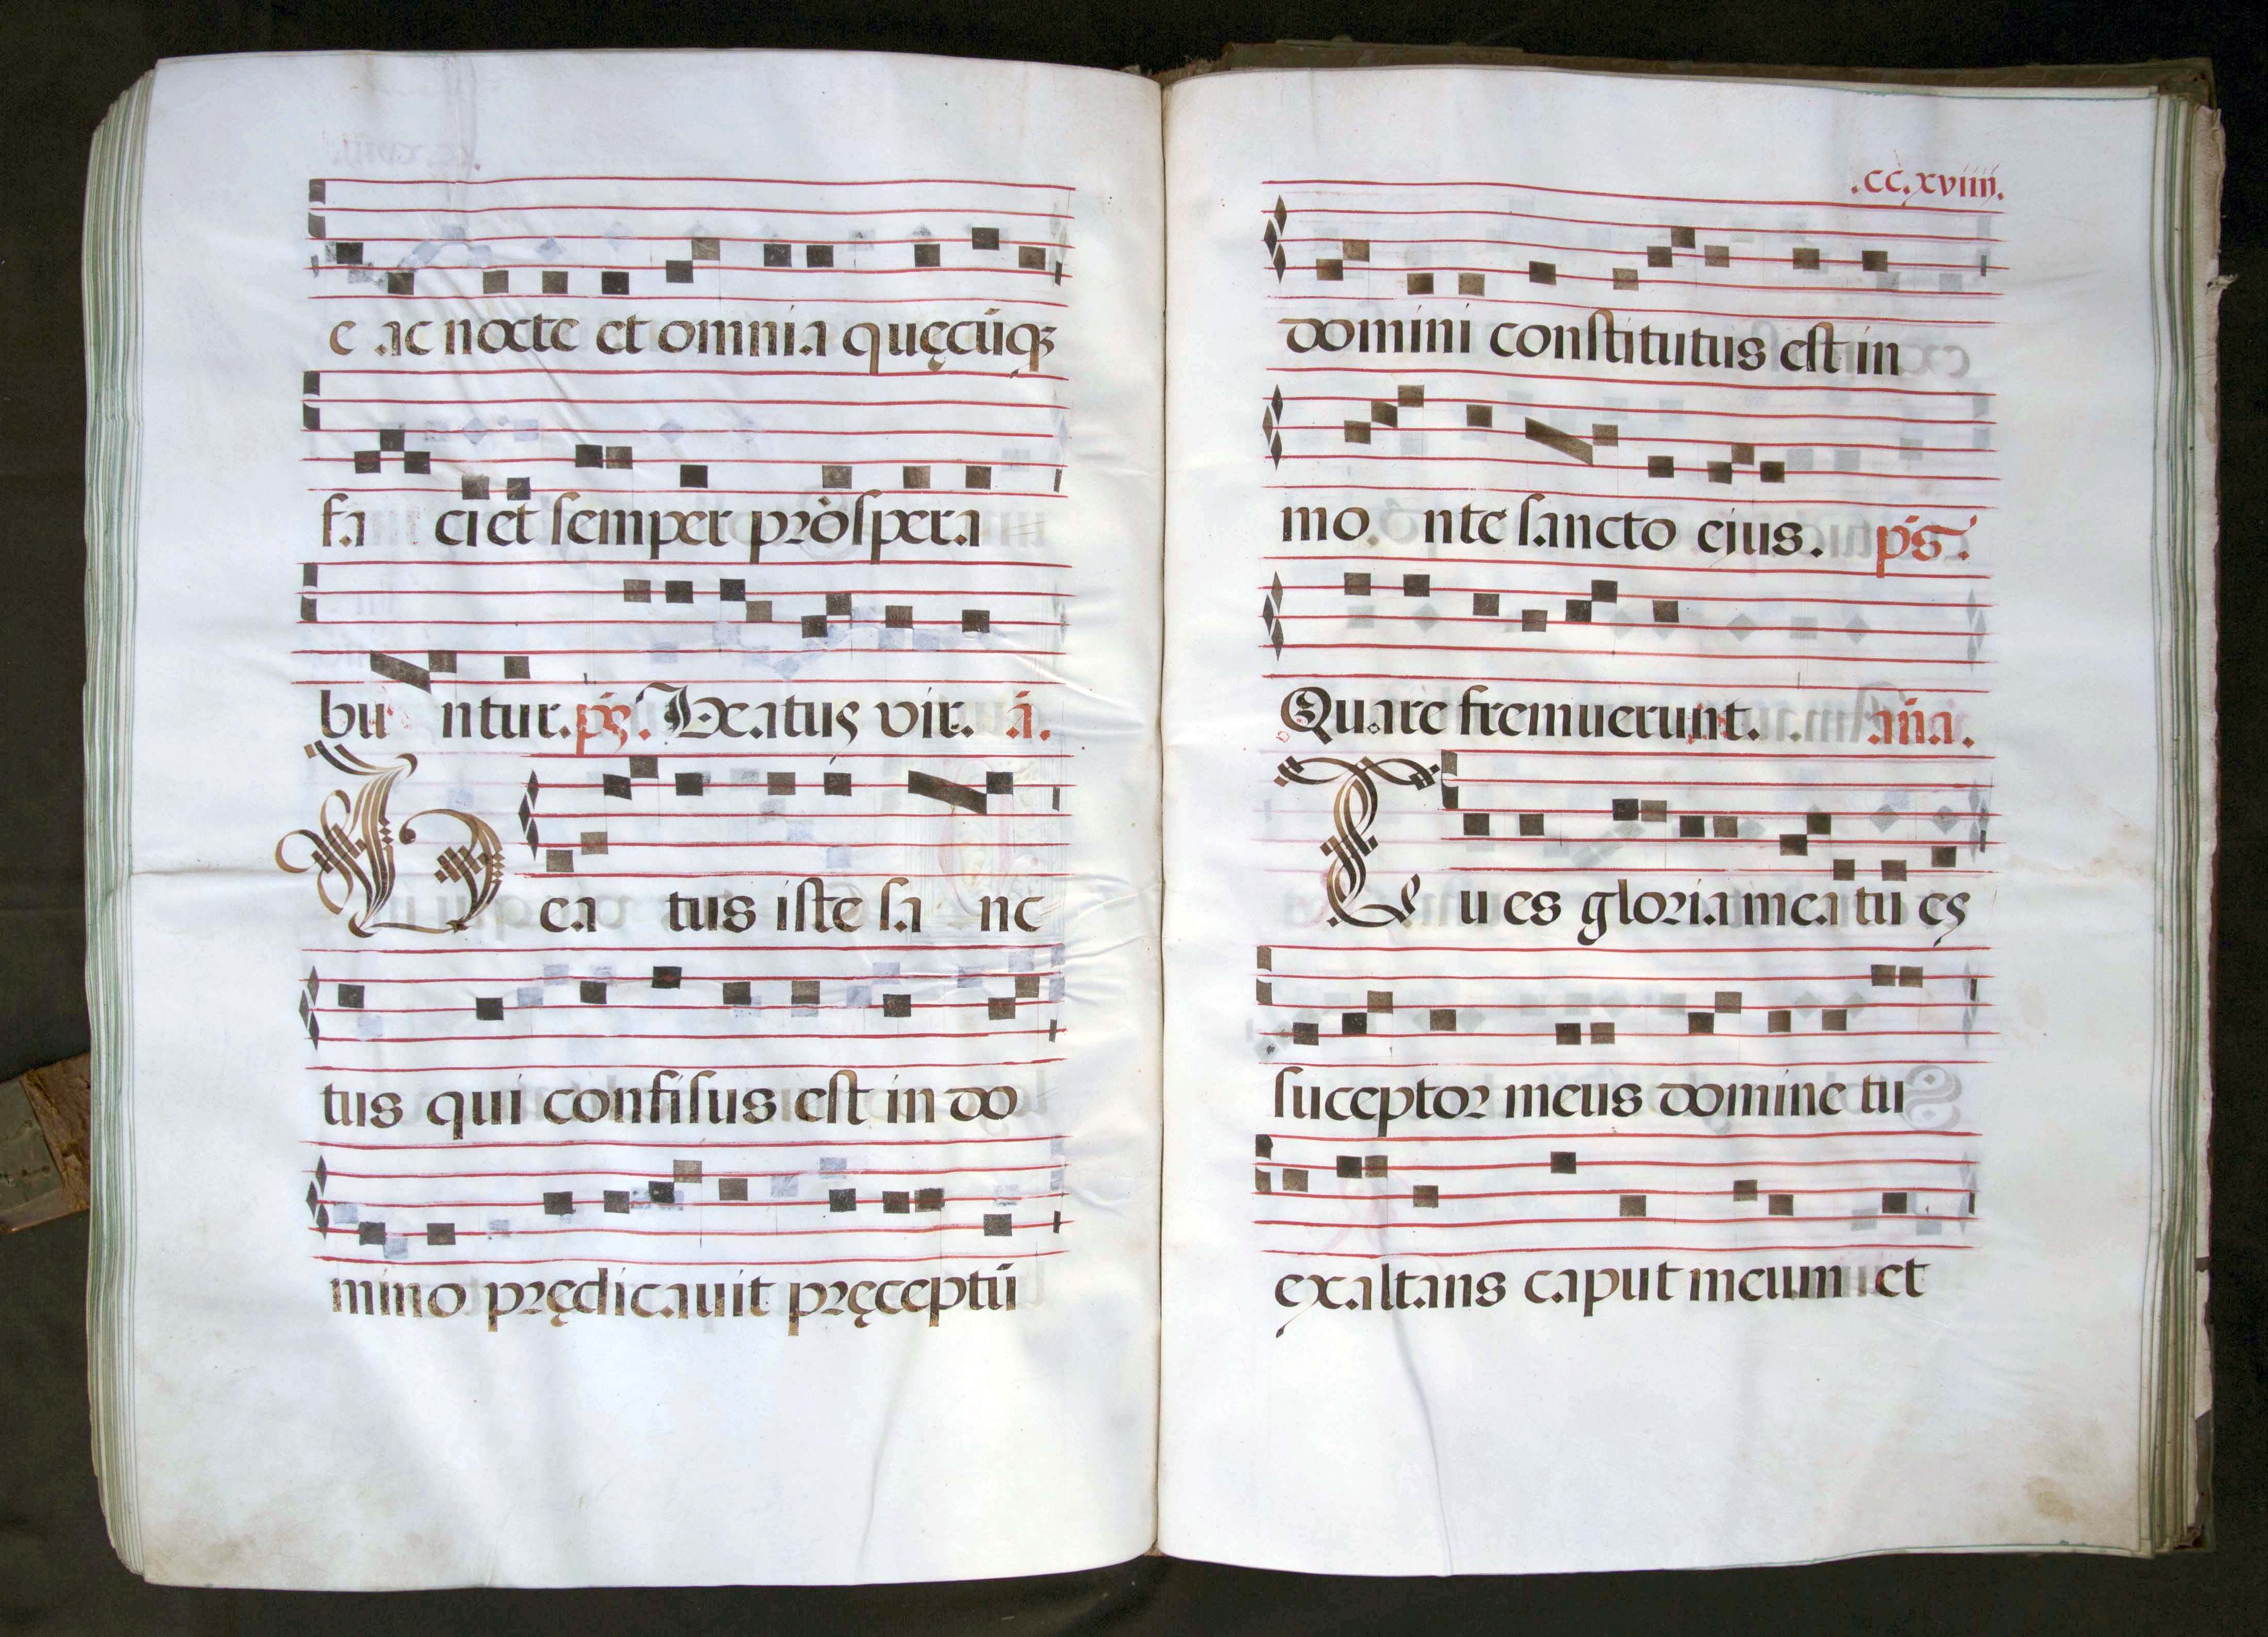 e ac nocte et omnia quęcūqꝫ
fa ciet semper prospera
bu ntur. ps. Beatus vir. a.
Bea tus iste sa nc
tus qui confisus est in do
mino prędicauit pręceptū
.cc.xviiii.
domini constitutus est in
mo nte sancto ejus. ps.
Quare fremuerunt. aña.
Tu es gloria mea tu es
suceptor meus domine tu
exaltans caput meum et